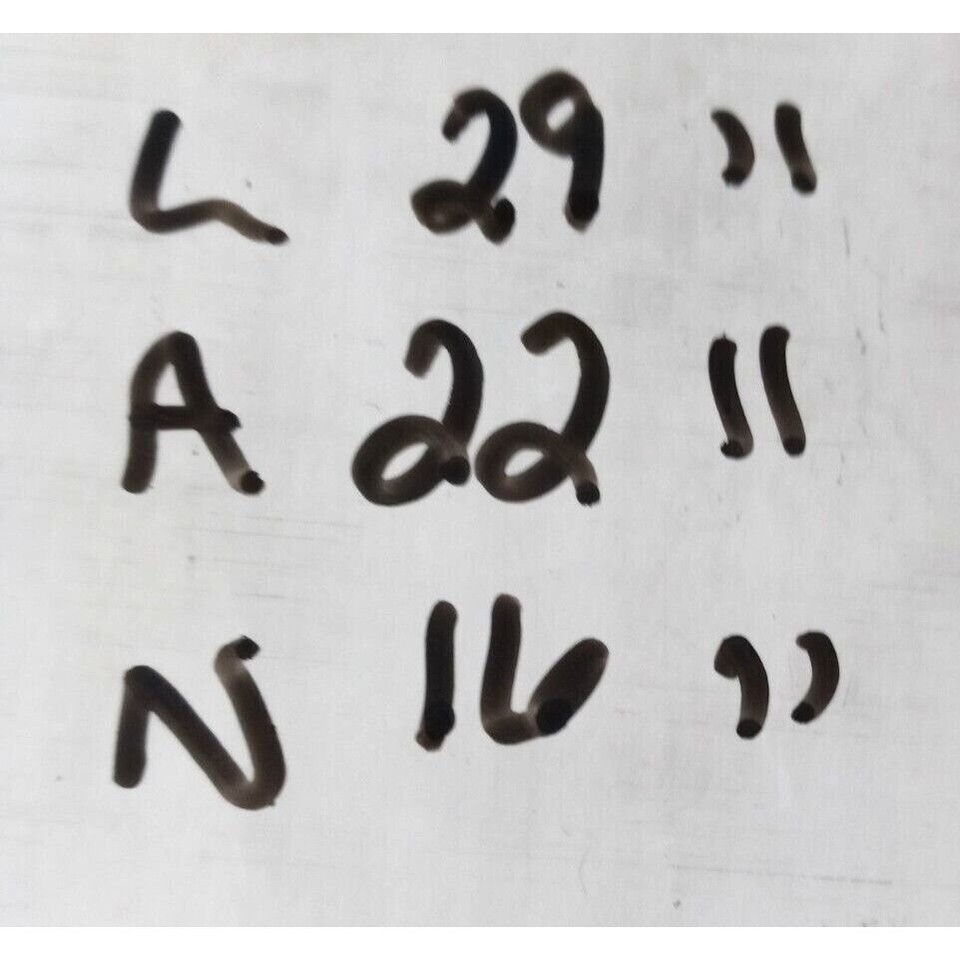 L 29 "
A 22 "
N 16 "